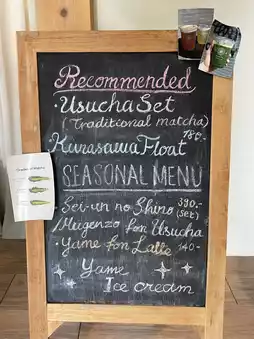 Recommended
・Usucha Set
(Traditional matcha)
780.-
Kurasawa Float
SEASONAL MENU
Sei-un no Shiro 390.-
(Set)
Meigenzo for Usucha
・Yame for Latte 140.-
Yame
Ice cream